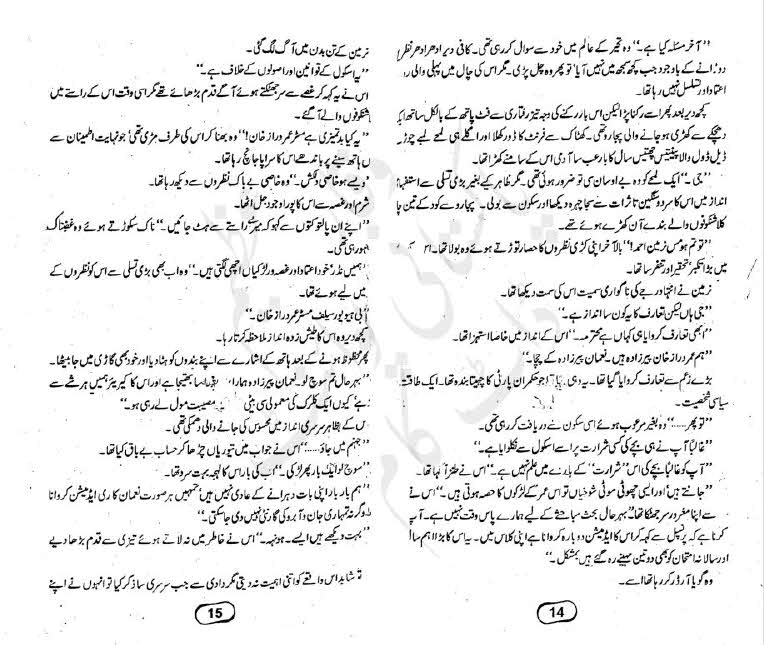 ”آخر مسئلہ کیا ہے۔“ وہ تحیر کے عالم میں خود سے سوال کر رہی تھی۔ کافی دیر ادھر ادھر نظر
دوڑانے کے باوجود جب کچھ سمجھ میں نہیں آیا‘ تو پھر وہ چل پڑی۔ مگر اس کی چال میں پہلی والی
اعتماد اور تسلسل نہیں رہا تھا۔
کچھ دیر بعد پھر اسے رکنا پڑا لیکن اس بار رکنے کی وجہ تیز رفتاری سے فٹ پاتھ کے بالکل ساتھ ایک
دھچکے سے کھڑی ہو جانے والی پجارو تھی۔ کھٹاک سے فرنٹ کا ڈور کھلا اور اگلے ہی لمحے لمبے چوڑے
ڈیل ڈول والا پینتیس چھتیس سال کا بارعب سا آدمی اس کے سامنے کھڑا تھا۔
”جی“۔ ایک لمحے کو وہ بے اوسان سی تو ضرور ہوئی تھی۔ مگر ظاہر کیے بغیر بڑی تسلی سے استفہامیہ
انداز میں اس کا سرد و سنگین تاثرات سے سجا چہرہ دیکھا اور سکون سے بولی۔ پجارو کے کود کے تین چار
کلاشنکوفوں والے بندے آن کھڑے ہوئے تھے۔
”تو تم ہو مس نرمین احمد!“ بالآخر اپنی کڑی نظروں کا حصار توڑتے ہوئے وہ بولا تھا۔ اس
میں بڑا تکبر‘ تحقیر اور تنفر سا تھا۔
نرمین نے انتہا درجے کی ناگواری سمیت اس کی سمت دیکھا تھا۔
”جی ہاں لیکن تعارف کا یہ کون سا انداز ہے۔“
”ابھی تعارف کروایا ہی کہاں ہے محترمہ۔“ اس کے انداز میں خاصا استہزا تھا۔
”ہم عمر دراز خان پیرزادہ ہیں۔ نعمان پیرزادہ کے چچا۔“
بڑے زعم سے تعارف کروایا گیا تھا۔ یہ وہی جو حکمران پارٹی کا چہیتا بندہ تھا۔ ایک طاقت
سیاسی شخصیت۔
”تو پھر......“ وہ بغیر مرعوب ہوئے اسی سکون سے دریافت کر رہی تھی۔
”غالباً آپ نے ہی بچے کی کسی شرارت پر اسے اسکول سے نکلوایا ہے۔“
”آپ کو غالباً بچے کی اس ”شرارت“ کے بارے میں علم نہیں ہے۔“ اس نے طنزاً کہا تھا۔
”جانتے ہیں‘ اور ایسی چھوٹی موٹی شوخیاں تو اس عمر کے لڑکوں کا حصہ ہوتی ہیں۔“ اس نے
سے اپنا مغرور سر جھٹکا تھا۔ ”بہرحال بحث مباحثے کے لیے ہمارے پاس وقت نہیں ہے۔ آپ
کرنا ہے کہ پرنسپل سے کہہ کر اس کا ایڈمیشن دوبارہ کروانا ہے اپنی کلاس میں۔ یہ اس کا بڑا اہم سال
اور سالانہ امتحان کو بھی دو تین مہینے رہ گئے ہیں بمشکل۔“
وہ گویا آرڈر کر رہا تھا اسے۔
14
نرمین کے تن بدن میں آگ لگ گئی۔
”یہ اسکول کے قوانین اور اصولوں کے خلاف ہے۔“
اس نے یہ کہہ کر غصے سے سر جھٹکتے ہوئے آگے قدم بڑھائے تھے مگر اسی وقت اس کے راستے میں
شنکوفوں والے آ گئے۔
”یہ کیا بدتمیزی ہے مسٹر عمر دراز خان!“ وہ بھنا کر اس کی طرف مڑی تھی‘ جو نہایت اطمینان سے
ہاتھ سینے پر باندھے اس کا سراپا جانچ رہا تھا۔
”ویسے ہو خاصی دلکش۔“ وہ خاصی بے باک نظروں سے دیکھ رہا تھا۔
شرم اور غصہ سے اس کا پورا وجود جل اٹھا۔
”اپنے ان پالتو کتوں سے کہو کہ میرے راستے سے ہٹ جائیں۔“ ناک سکوڑتے ہوئے وہ غضبناک
ہو رہی تھی۔
”ہمیں نڈر‘ خود اعتماد اور غصہ ور لڑکیاں اچھی لگتی ہیں۔“ وہ اب بھی بڑی تسلی سے اس کو نظروں کے
میں لیے ہوئے تھا۔
”بی ہیو یور سیلف مسٹر عمر دراز خان۔“
کچھ دیر وہ اس کا طیش زدہ انداز ملاحظہ کرتا رہا۔
پھر محظوظ ہونے کے بعد ہاتھ کے اشارے سے اپنے بندوں کو ہٹا دیا اور خود بھی گاڑی میں جا بیٹھا۔
”بہرحال تم سوچ لو۔ نعمان پیرزادہ ہمارا بھتیجا ہے اور اس کا کیریئر ہمیں ہر شے سے
ہے‘ کیوں ایک کلرک کی معمولی سی بیٹی مصیبت مول لے رہی ہو۔“
اس کے بظاہر سرسری انداز میں محسوس کی جانے والی دھمکی تھی۔
”جہنم میں جاؤ.....“ اس نے جواب میں تیوریاں چڑھا کر حساب بے باق کیا تھا۔
”سوچ لو ایک بار پھر لڑکی۔“ اب کی بار اس کا لہجہ بہت سرد تھا۔
”ہم بار بار اپنی بات دہرانے کے عادی نہیں ہیں‘ تمہیں ہر صورت نعمان کا ری ایڈمیشن کروانا
وگرنہ تمہاری جان و آبرو کی گارنٹی نہیں دی جا سکتی۔“
”بہت دیکھے ہیں ایسے۔ ہونہہ۔“ اس نے خاطر میں نہ لاتے ہوئے تیزی سے قدم بڑھا دیے
تو شاید اس واقعے کو اتنی اہمیت نہ دیتی مگر دادی سے جب سرسری سا ذکر کیا تو انہوں نے اپنے
15